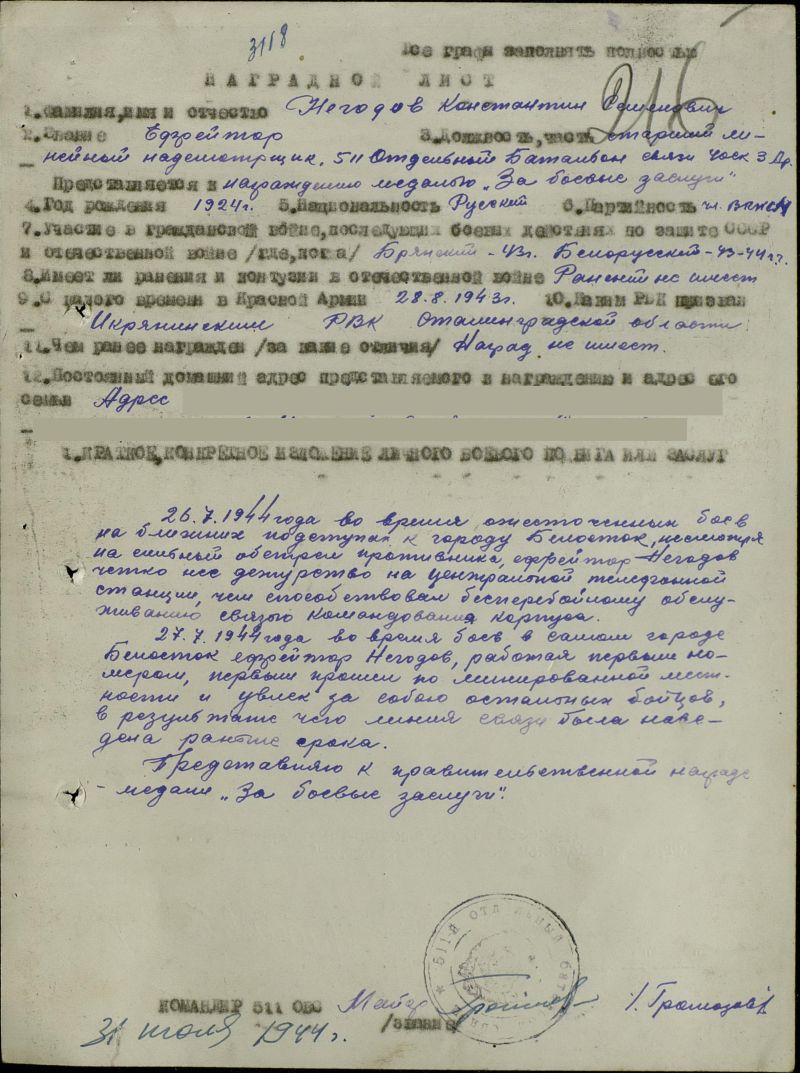 3118
Все графы заполнять полностью
216
НАГРАДНОЙ ЛИСТ
1.Фамилия,имя и отчество Негодов Константин Семенович
2.Звание Ефрейтор 3.Должность,часть старший ли-
нейный надсмотрщик, 511 Отдельный Батальон связи
Представляется к награждению медалью „За боевые заслуги"
4.Год рождения 1924г. 5.Национальность Русский 6.Партийность чл. ВЛКСМ
7.Участие в гражданской войне,последующих боевых действиях по защите СССР
и отечественной войне /где,когда/ Брянский -43г. Белорусский -43-44г.г.
8.Имеет ли ранения и контузии в отечественной войне Ранений не имеет
9.С какого времени в Красной Армии 28.8.1943г. 10.Каким РВК призван
Икрянинским РВК Сталинградской области
11.Чем ранее награжден /за какие отличия/ Наград не имеет.
12.Постоянный домашний адрес представляемого к награждению и адрес его
семьи Адрес
1.КРАТКОЕ,КОНКРЕТНОЕ ИЗЛОЖЕНИЕ ЛИЧНОГО БОЕВОГО ПОДВИГА ИЛИ ЗАСЛУГ
26.7.1944 года во время ожесточенных боев
на ближних подступах к городу Белосток, несмотря
на сильный обстрел противника, ефрейтор Негодов
четко нес дежурство на центральной телефонной
станции, чем способствовал бесперебойному обслу-
живанию связью командования корпуса.
27.7.1944 года во время боев в самом городе
Белосток ефрейтор Негодов, работая первым но-
мером, первым прошел по минированной мест-
ности и увлек за собою остальных бойцов,
в результате чего линия связи была наве-
дена раньше срока.
Представляю к правительственной награде
- медали „За боевые заслуги".
511-Й ОТДЕЛЬНЫЙ БАТ
КОМАНДИР 511 ОБС Майор /Громозов/
/звание
31 июля 1944г.